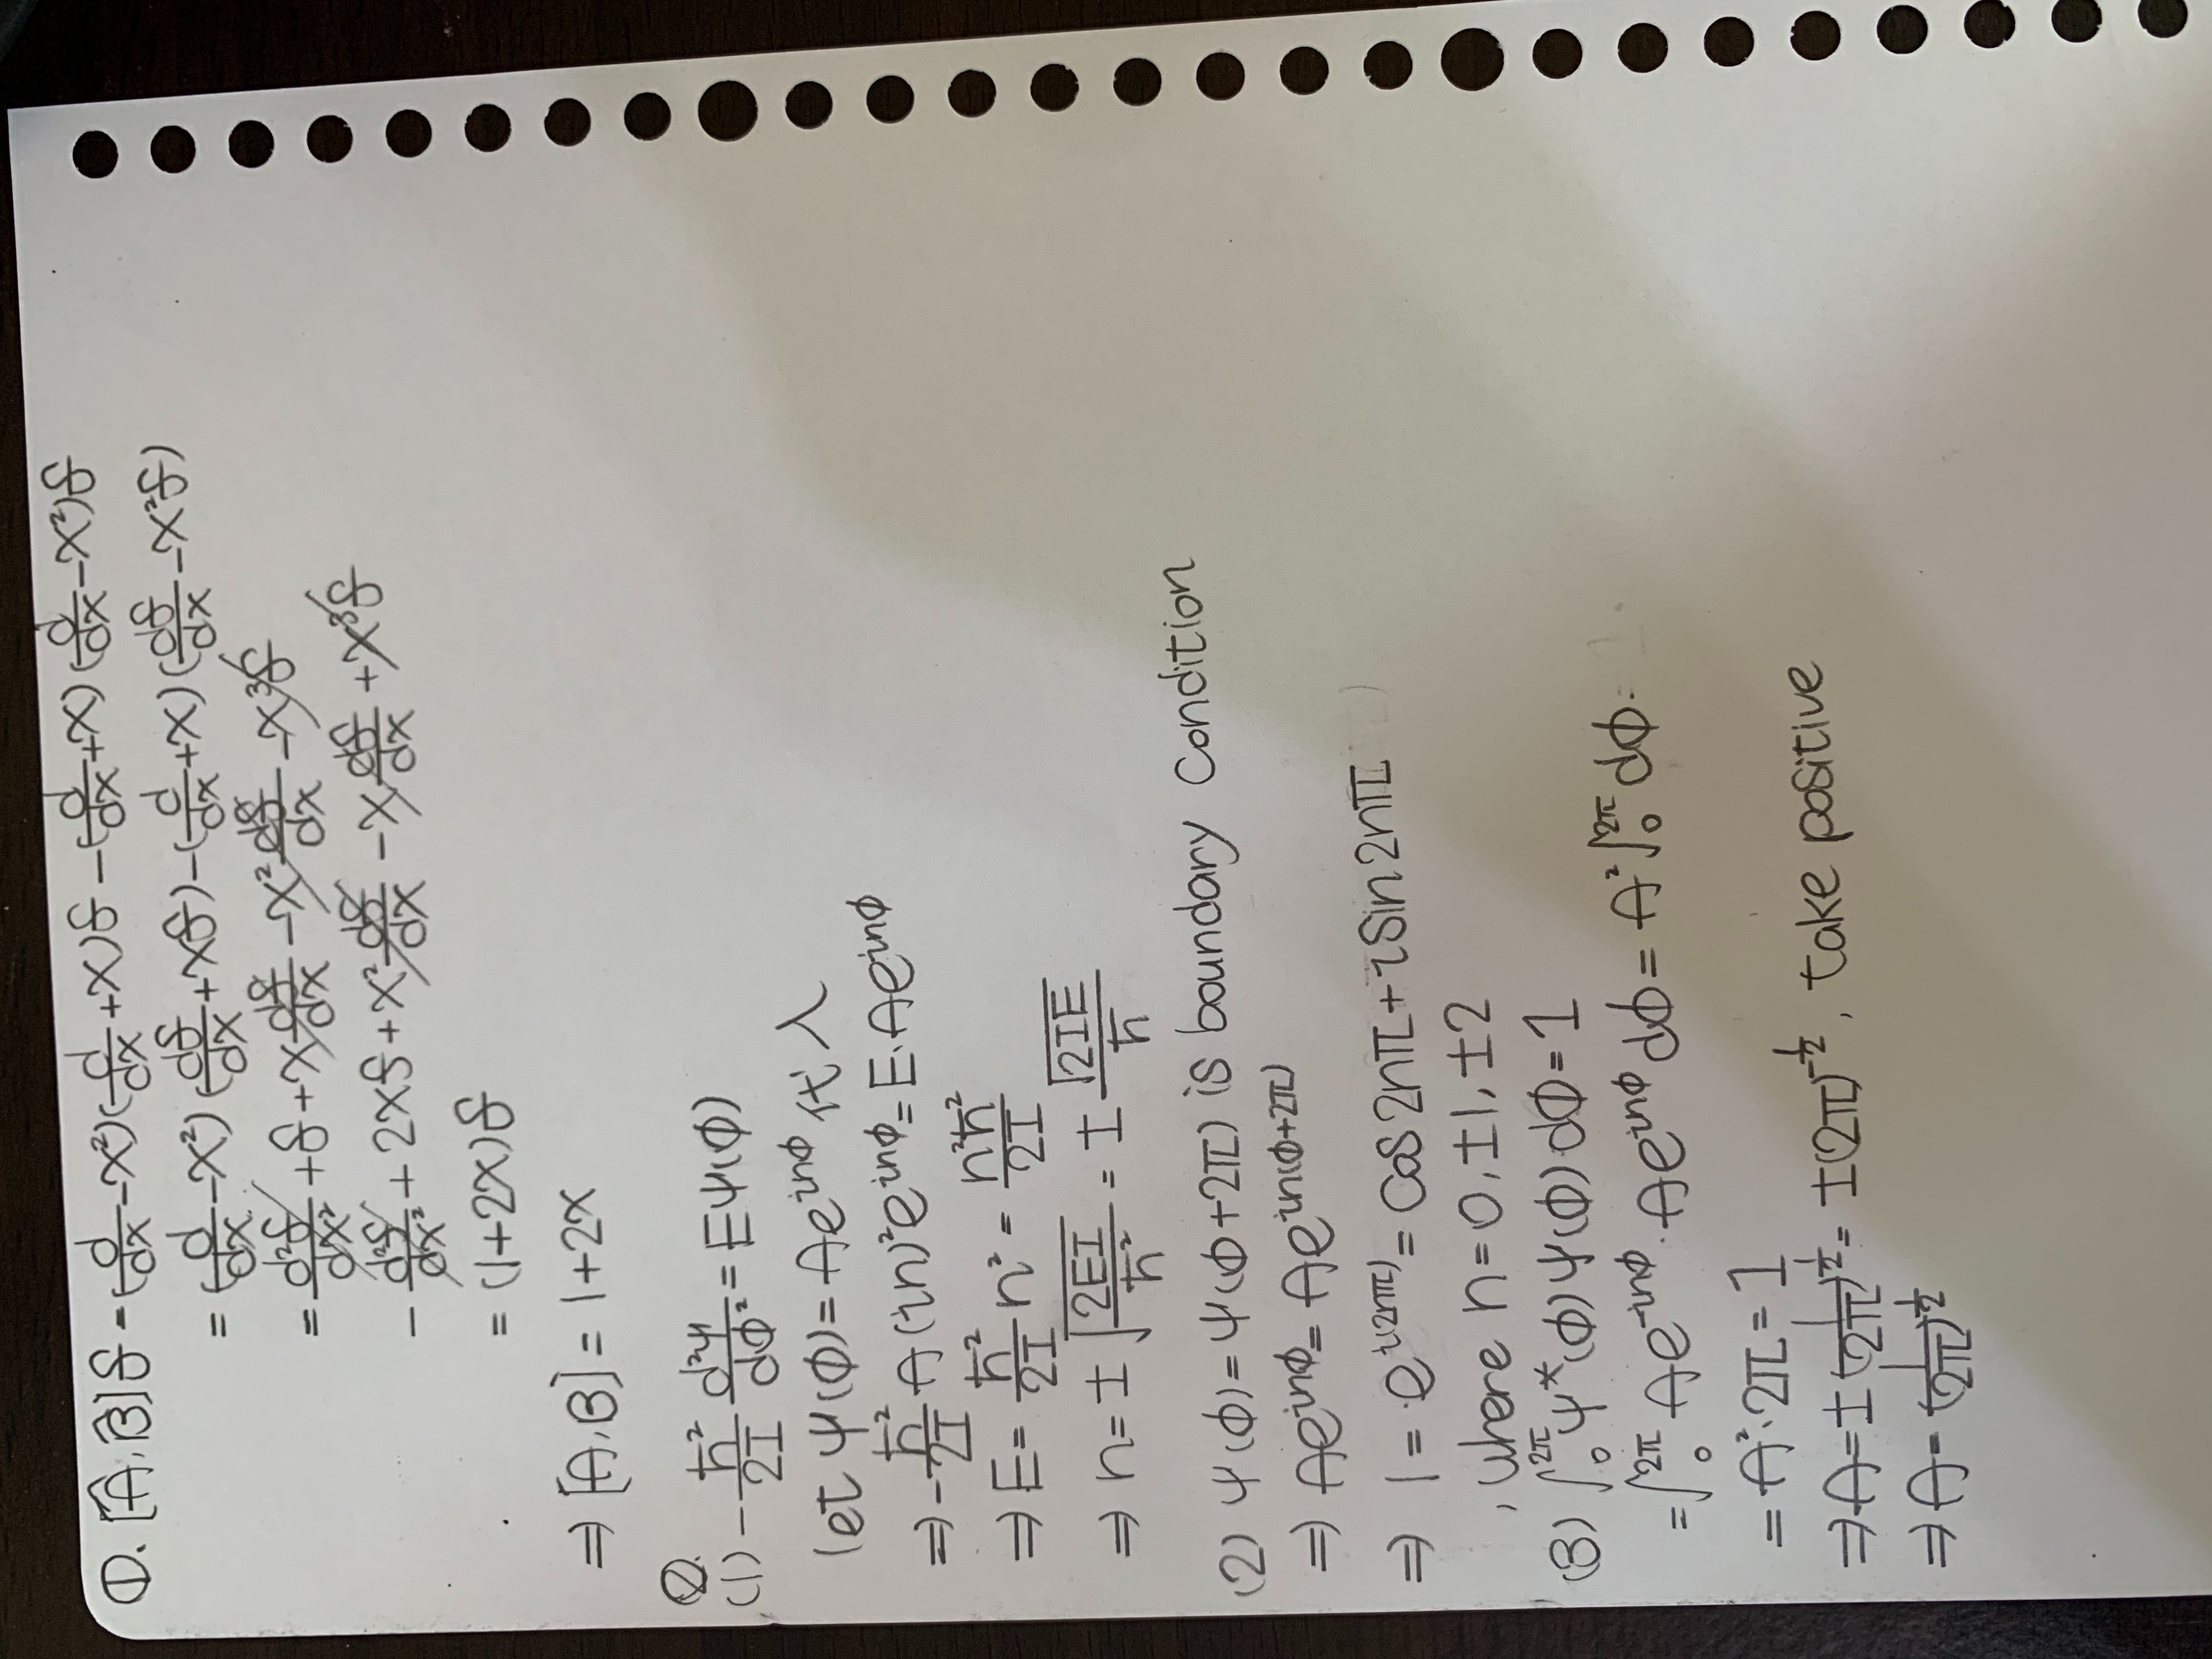 ①. [Â,B̂]f = (d/dx - x²)(d/dx + x)f - (d/dx + x)(d/dx - x²)f
= (d/dx - x²)(df/dx + xf) - (d/dx + x)(df/dx - x²f)
= d²f/dx² + f + x df/dx - x² df/dx - x³f
- d²f/dx² + 2xf + x² df/dx - x df/dx + x³f
= (1+2x)f
⇒ [A,B] = 1+2x
②.
(1) -ħ²/2I d²ψ/dϕ² = Eψ(ϕ)
let ψ(ϕ) = Ae^{inϕ} 代入
⇒ -ħ²/2I A(in)²e^{inϕ} = E·Ae^{inϕ}
⇒ E = ħ²/2I n² = n²ħ²/2I
⇒ n = ±√(2EI/ħ²) = ±√(2IE)/ħ
(2) ψ(ϕ) = ψ(ϕ+2π) is boundary condition
⇒ Ae^{inϕ} = Ae^{in(ϕ+2π)}
⇒ 1 = e^{i(2nπ)} = cos2nπ + i sin2nπ
, where n = 0, ±1, ±2
(3) ∫₀^{2π} ψ*(ϕ)ψ(ϕ)dϕ = 1
= ∫₀^{2π} Ae^{-inϕ}·Ae^{inϕ} dϕ = A² ∫₀^{2π} dϕ
= A²·2π = 1
⇒ A = ±(1/2π)^{1/2} = ±(2π)^{-1/2}, take positive
⇒ A = (1/2π)^{1/2}